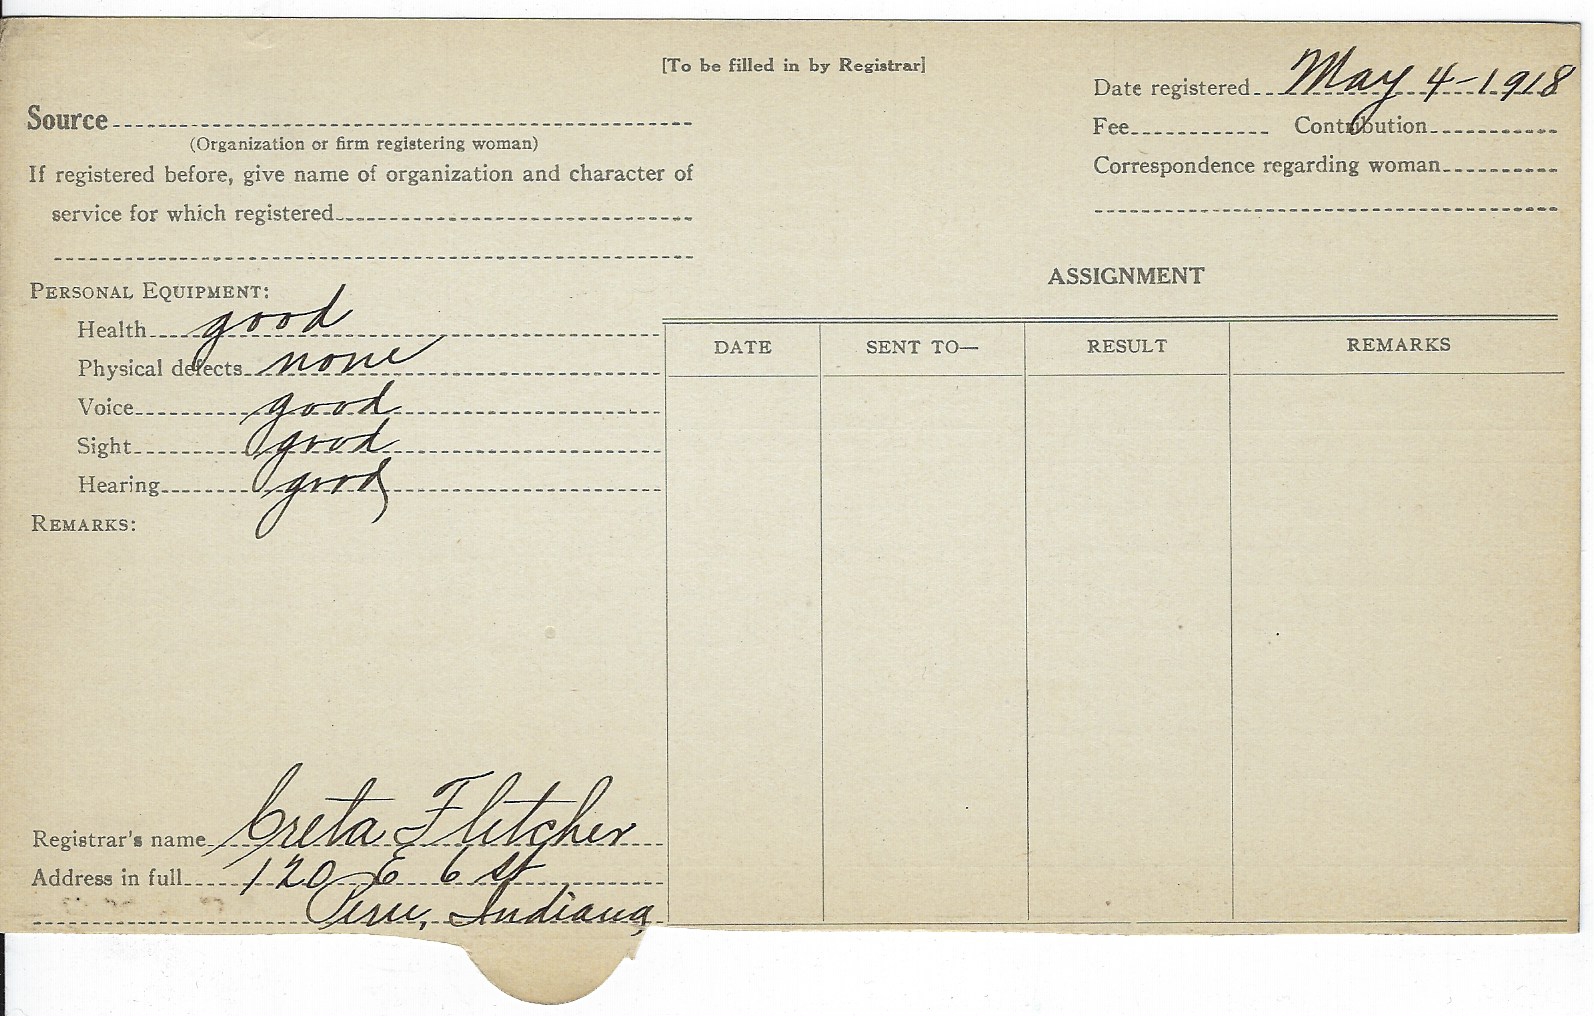 [To be filled in by Registrar]
Date registered May 4-1918
Source
Fee Contribution
(Organization or firm registering woman)
Correspondence regarding woman
If registered before, give name of organization and character of
service for which registered
ASSIGNMENT
PERSONAL EQUIPMENT:
Health good
Physical defects none
Voice good
Sight good
Hearing good
REMARKS:
DATE SENT TO— RESULT REMARKS
Registrar's name Creta Fletcher
Address in full 120 E 6 St
Peru, Indiana